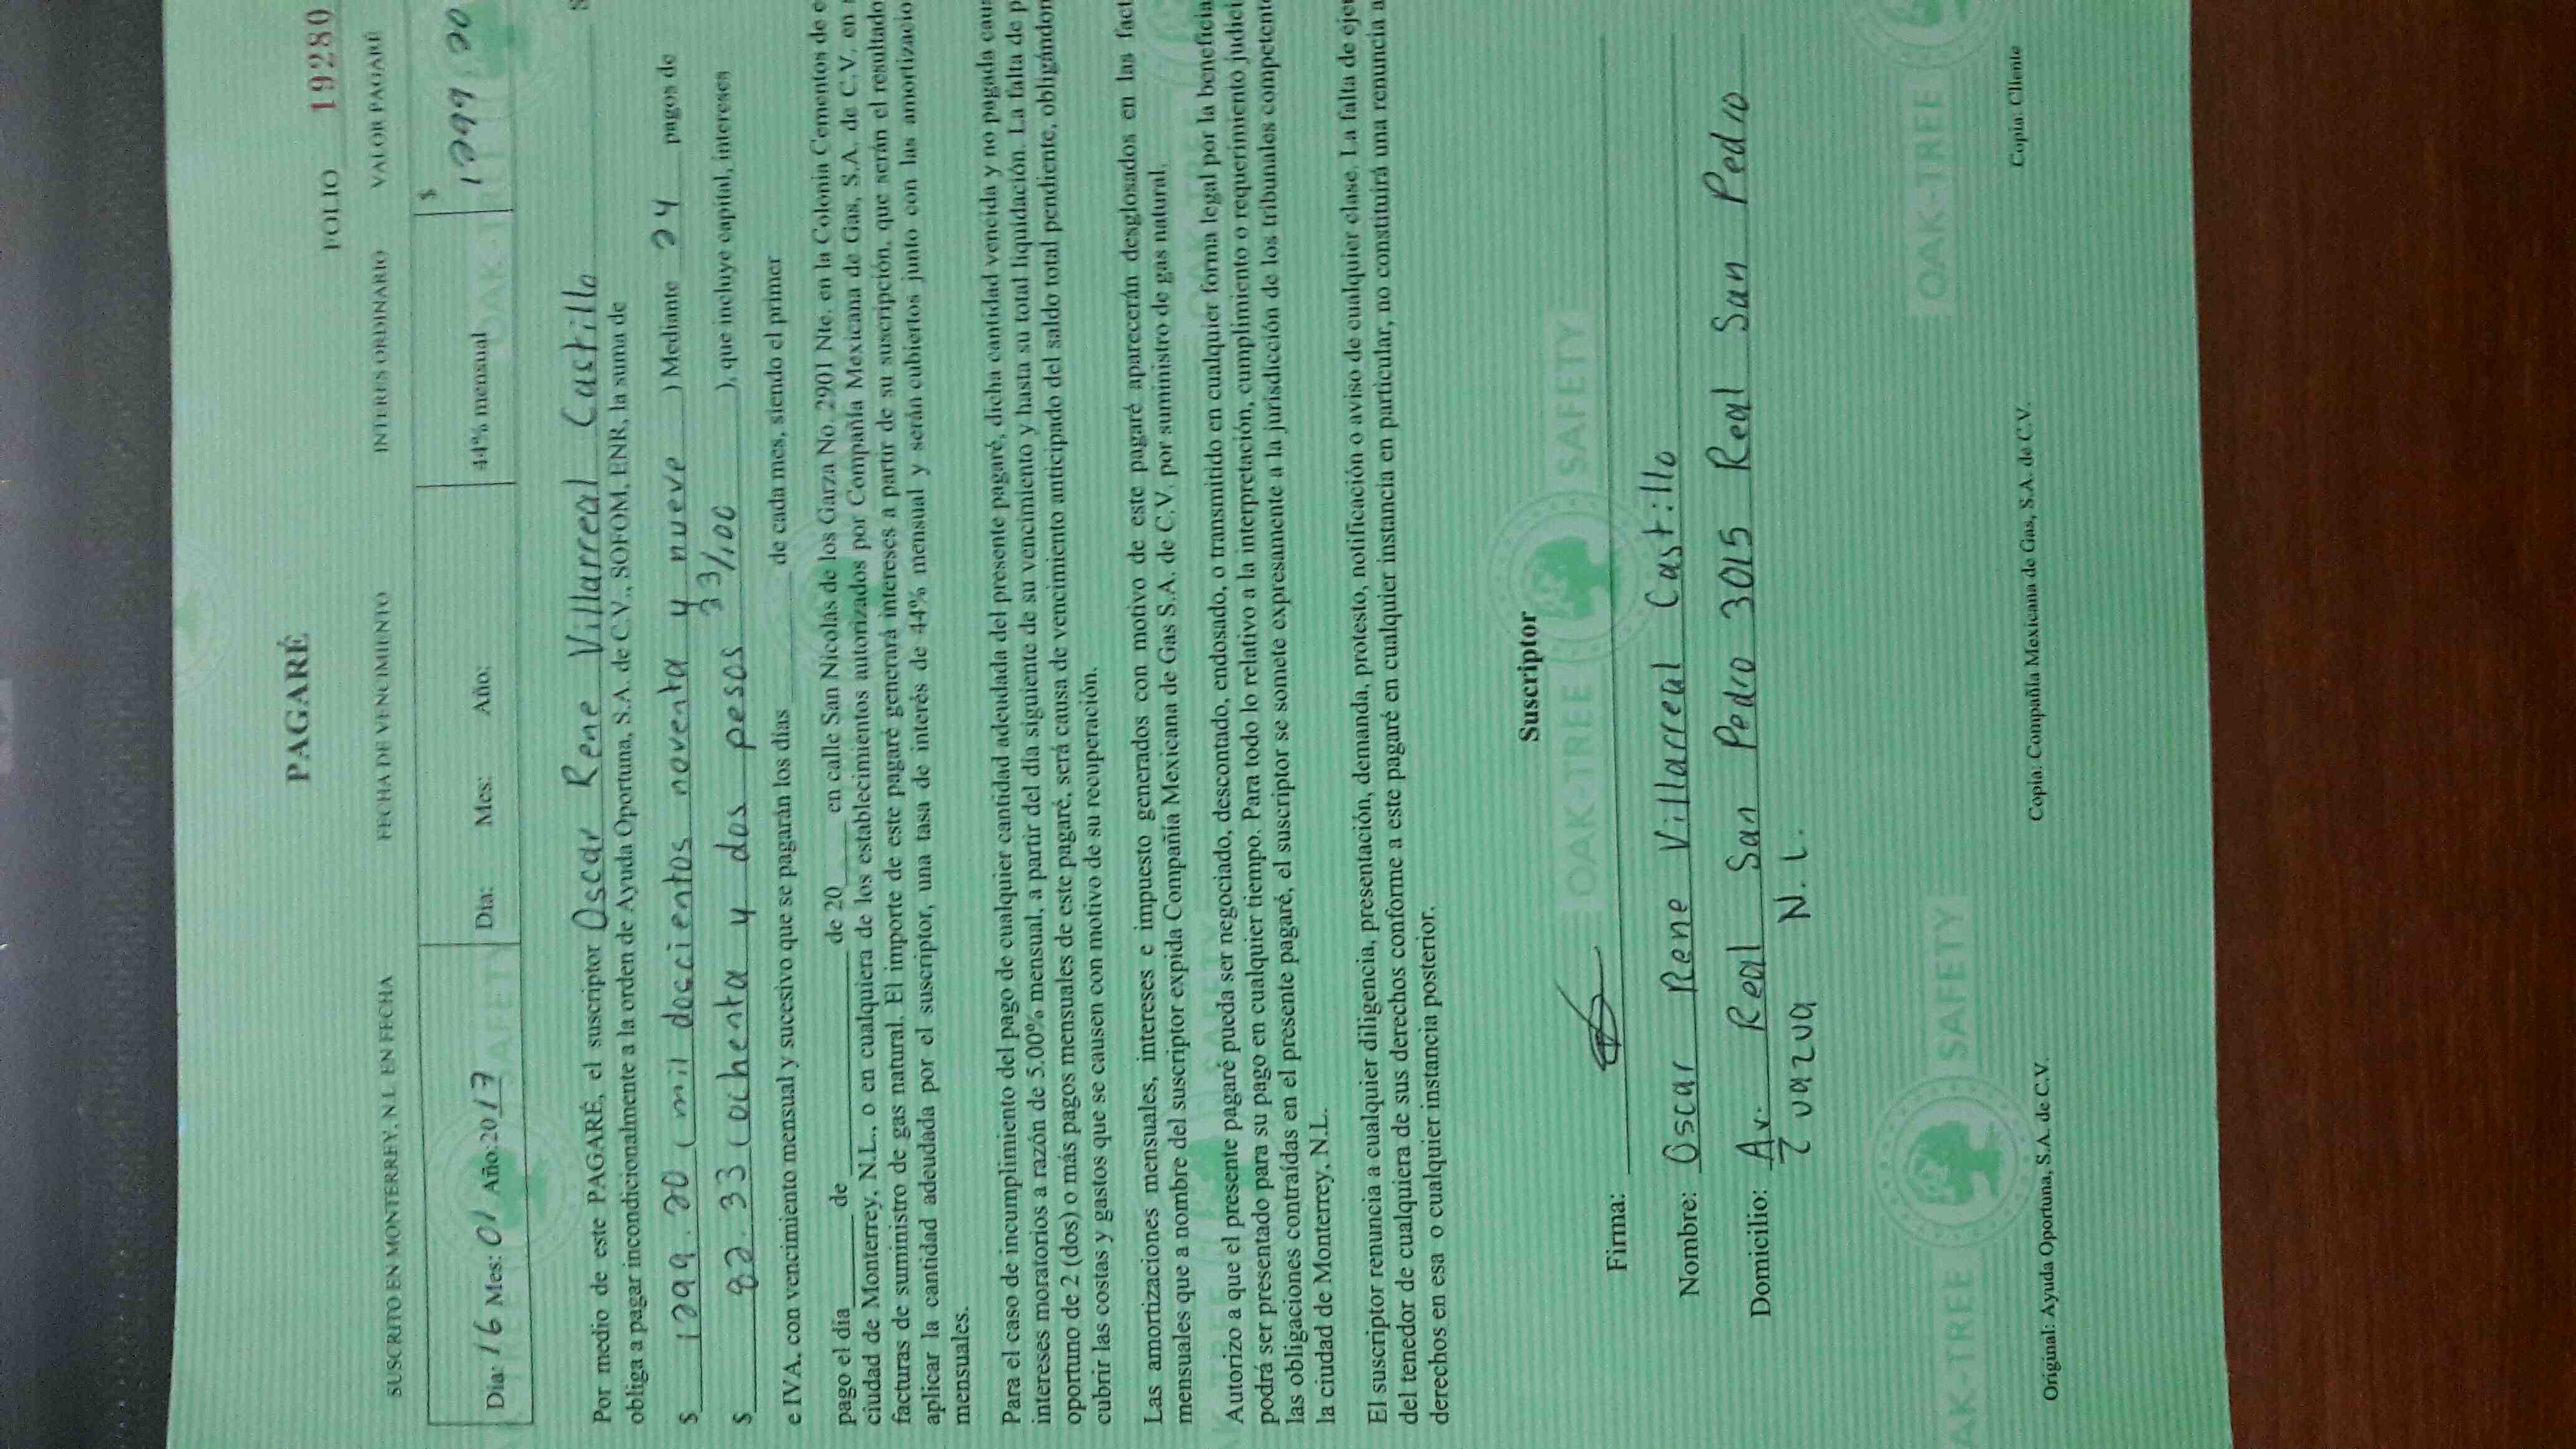 PAGARÉ
FOLIO 19280
SUSCRITO EN MONTERREY, N.L. EN FECHA FECHA DE VENCIMIENTO INTERES ORDINARIO VALOR PAGARÉ
Dia: 16 Mes: 01 Año:2017 Dia: Mes: Año: 44% mensual $ 1299.20
Por medio de este PAGARÉ, el suscriptor Oscar Rene Villarreal Castillo
obliga a pagar incondicionalmente a la orden de Ayuda Oportuna, S.A. de C.V., SOFOM, ENR, la suma de
$ 1299.20 (mil doscientos noventa y nueve ) Mediante 24 pagos de
$ 82.33 (ochenta y dos pesos 33/100 ), que incluye capital, intereses
e IVA, con vencimiento mensual y sucesivo que se pagarán los días de cada mes, siendo el primer
pago el día de de 20 en calle San Nicolás de los Garza No. 2901 Nte. en la Colonia Cementos de
ciudad de Monterrey, N.L., o en cualquiera de los establecimientos autorizados por Compañía Mexicana de Gas, S.A. de C.V. en
facturas de suministro de gas natural. El importe de este pagaré generará intereses a partir de su suscripción, que serán el resultado
aplicar la cantidad adeudada por el suscriptor, una tasa de interés de 44% mensual y serán cubiertos junto con las
mensuales.
Para el caso de incumplimiento del pago de cualquier cantidad adeudada del presente pagaré, dicha cantidad vencida y no pagada
intereses moratorios a razón de 5.00% mensual, a partir del día siguiente de su vencimiento y hasta su total liquidación. La falta de
oportuno de 2 (dos) o más pagos mensuales de este pagaré, será causa de vencimiento anticipado del saldo total pendiente,
cubrir las costas y gastos que se causen con motivo de su recuperación.
Las amortizaciones mensuales, intereses e impuesto generados con motivo de este pagaré aparecerán desglosados en las
mensuales que a nombre del suscriptor expida Compañía Mexicana de Gas S.A. de C.V. por suministro de gas natural.
Autorizo a que el presente pagaré pueda ser negociado, descontado, endosado, o transmitido en cualquier forma legal por la
podrá ser presentado para su pago en cualquier tiempo. Para todo lo relativo a la interpretación, cumplimiento o requerimiento
las obligaciones contraídas en el presente pagaré, el suscriptor se somete expresamente a la jurisdicción de los tribunales
la ciudad de Monterrey, N.L.
El suscriptor renuncia a cualquier diligencia, presentación, demanda, protesto, notificación o aviso de cualquier clase. La falta de
del tenedor de cualquiera de sus derechos conforme a este pagaré en cualquier instancia en particular, no constituirá una renuncia a
derechos en esa o cualquier instancia posterior.
Suscriptor
OAK-TREE SAFETY
Firma:
Nombre: Oscar Rene Villarreal Castillo
Domicilio: Av. Real San Pedro 3015 Real San Pedro
Zuazua N.L.
OAK-TREE SAFETY OAK-TREE
Original: Ayuda Oportuna, S.A. de C.V. Copia: Compañía Mexicana de Gas, S.A. de C.V. Copia: Cliente